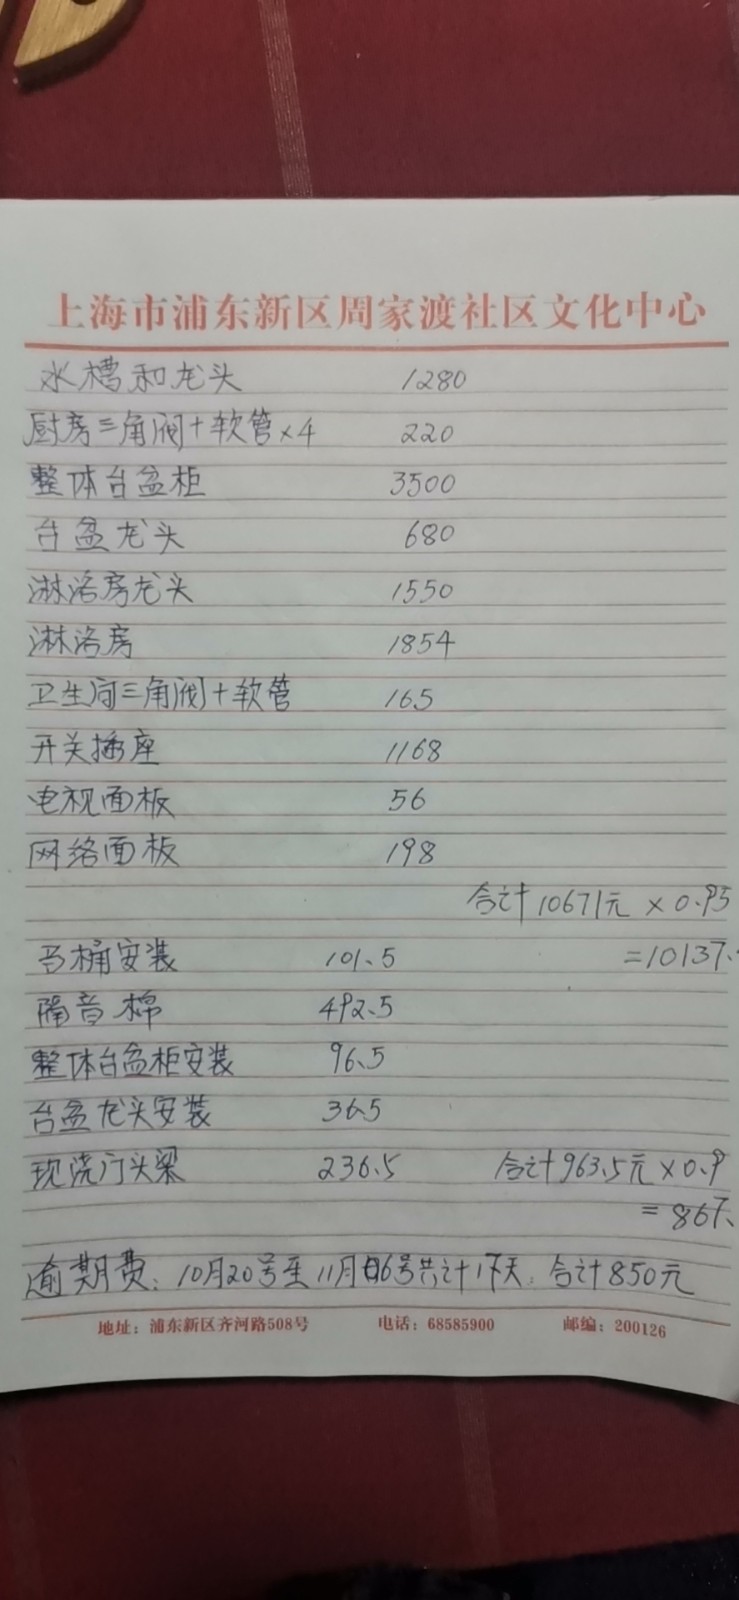 上海市浦东新区周家渡社区文化中心
水槽和龙头 1280
厨房三角阀+软管×4 220
整体台盆柜 3500
台盆龙头 680
淋浴房龙头 1550
淋浴房 1854
卫生间三角阀+软管 165
开关插座 1168
电视面板 56
网络面板 198
合计10671元 ×0.95
马桶安装 101.5 =10137.
隔音棉 492.5
整体台盆柜安装 96.5
台盆龙头安装 36.5
现浇门头梁 236.5 合计963.5元×0.9
=867.
逾期费:10月20号至11月06号共计17天,合计850元
地址:浦东新区齐河路508号 电话:68585900 邮编:200126